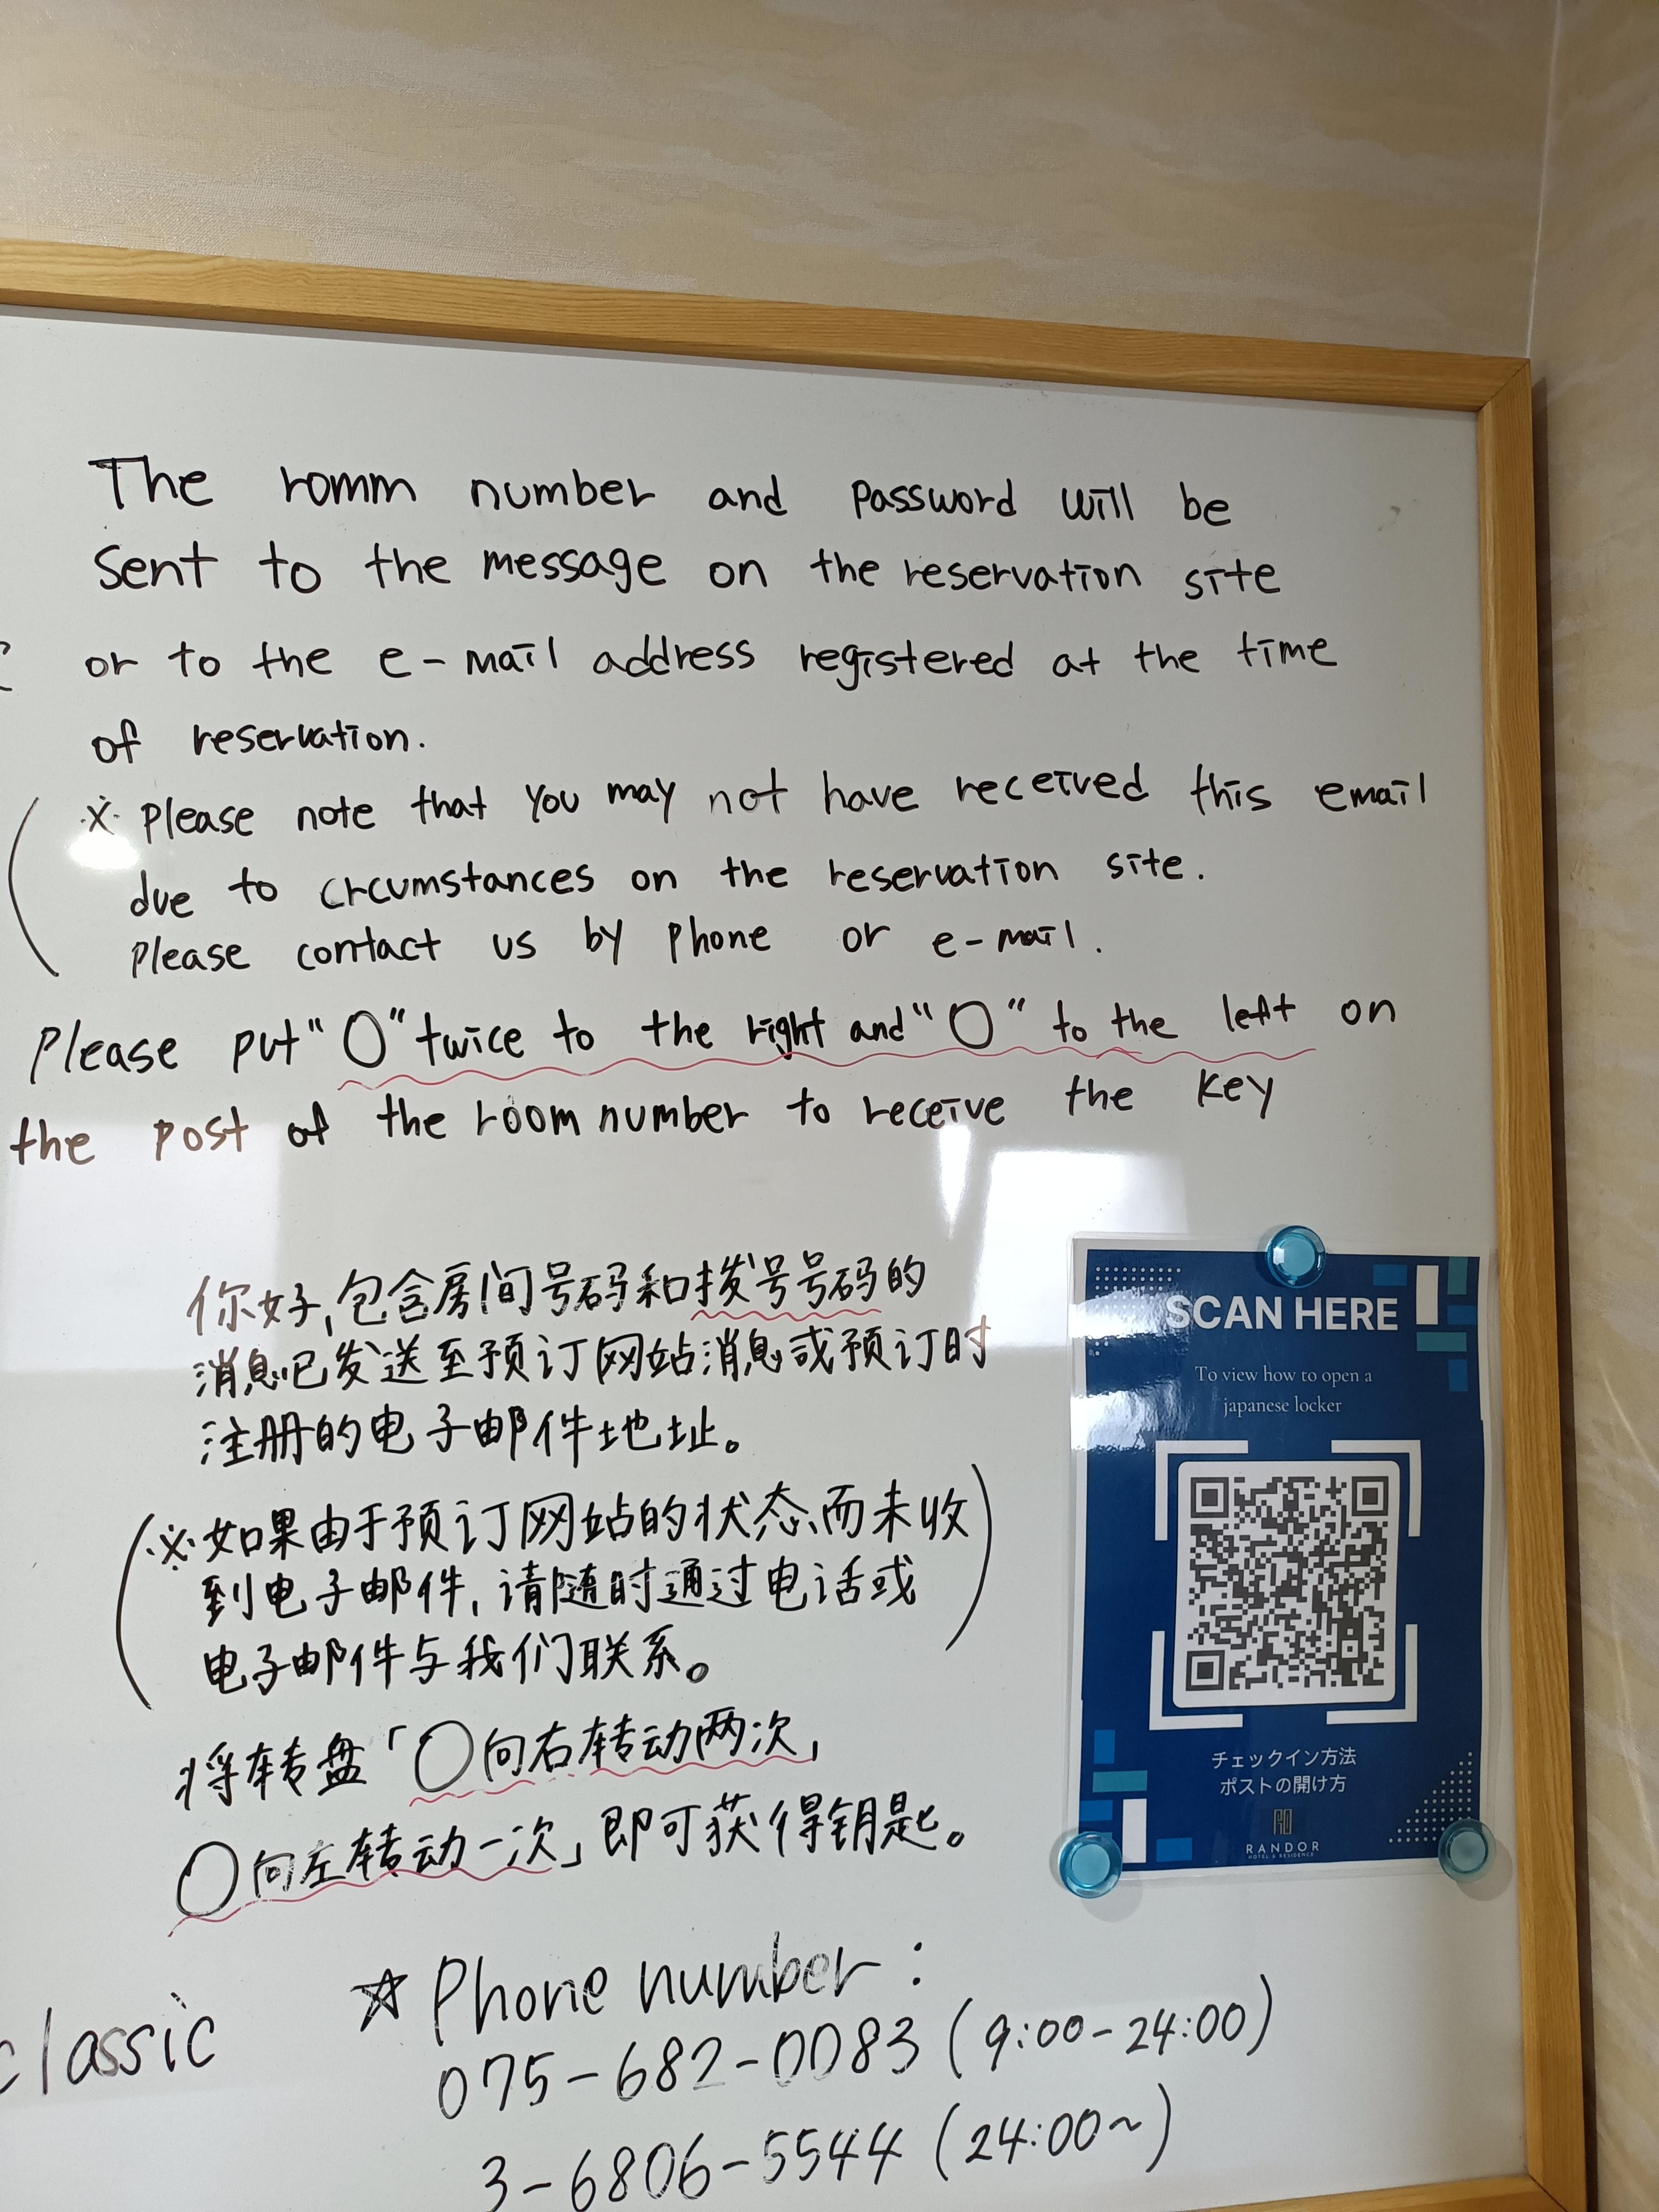 The romm number and password will be
sent to the message on the reservation site
or to the e-mail address registered at the time
of reservation.
※ Please note that you may not have received this email
due to crcumstances on the reservation site.
Please contact us by phone or e-mail.
Please put "〇" twice to the right and "〇" to the left on
the post of the room number to receive the key
你好,包含房间号码和拨号号码的
消息已发送至预订网站消息或预订时
注册的电子邮件地址。
(※如果由于预订网站的状态而未收
到电子邮件,请随时通过电话或
电子邮件与我们联系。)
将转盘「〇向右转动两次,
〇向左转动一次」即可获得钥匙。
SCAN HERE
To view how to open a
japanese locker
チェックイン方法
ポストの開け方
RANDOR
HOTEL & RESIDENCE
classic
☆ Phone number:
075-682-0083 (9:00-24:00)
3-6806-5544 (24:00~)